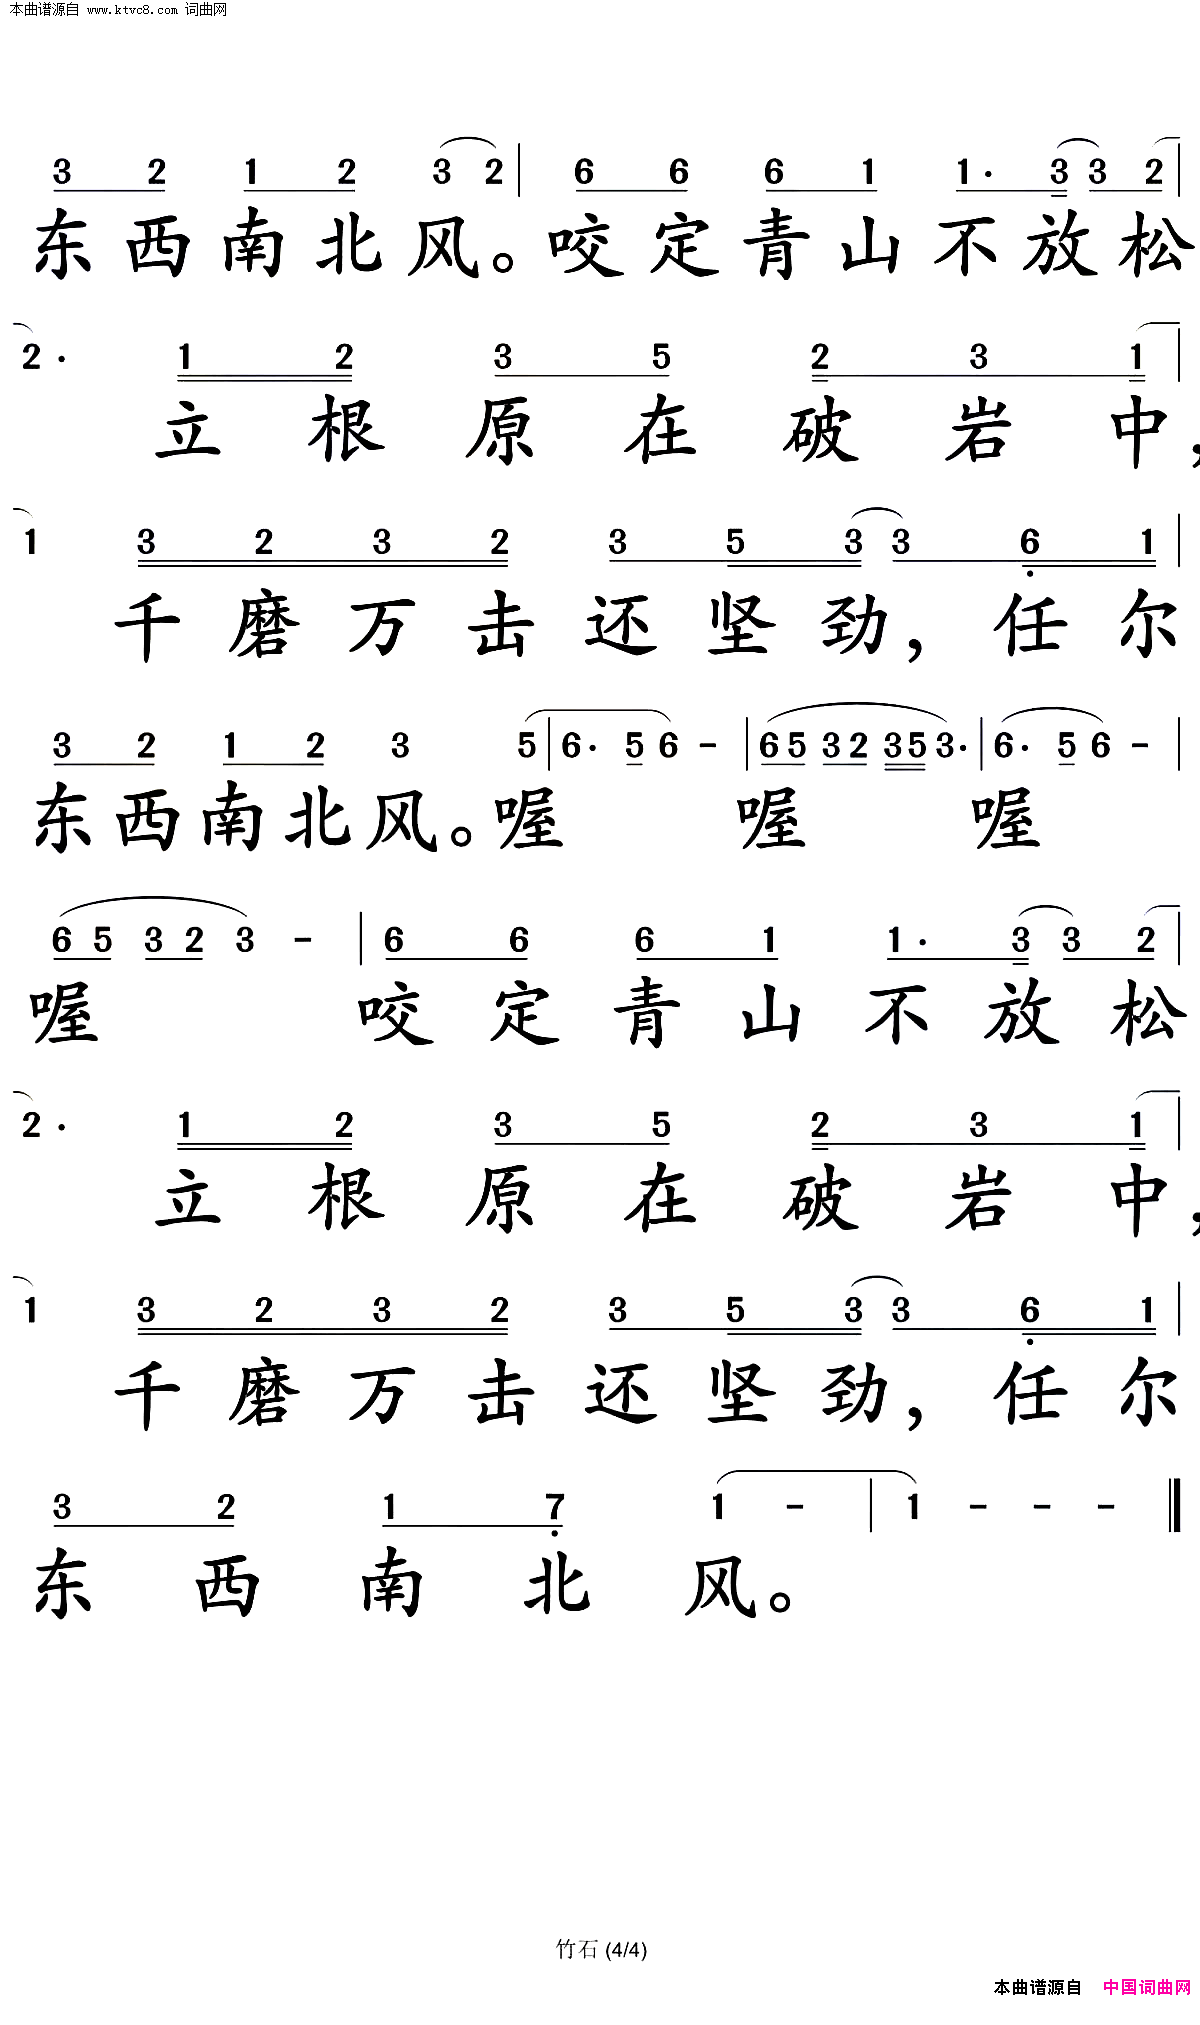 本曲谱源自 www.ktvc8.com 词曲网
3 2 1 2 3 2 | 6 6 6 1 1· 3 3 2 |
东西南北风。咬定青山不放松
2· 1 2 3 5 2 3 1 |
立根原在破岩中，
1 3 2 3 2 3 5 3 3 6 1 |
千磨万击还坚劲，任尔
3 2 1 2 3 5 | 6· 5 6 - | 6 5 3 2 3 5 3· | 6· 5 6 - |
东西南北风。喔 喔 喔
6 5 3 2 3 - | 6 6 6 1 1· 3 3 2 |
喔 咬定青山不放松
2· 1 2 3 5 2 3 1 |
立根原在破岩中，
1 3 2 3 2 3 5 3 3 6 1 |
千磨万击还坚劲，任尔
3 2 1 7 1 - | 1 - - - ‖
东西南北风。
竹石 (4/4)
本曲谱源自 中国词曲网